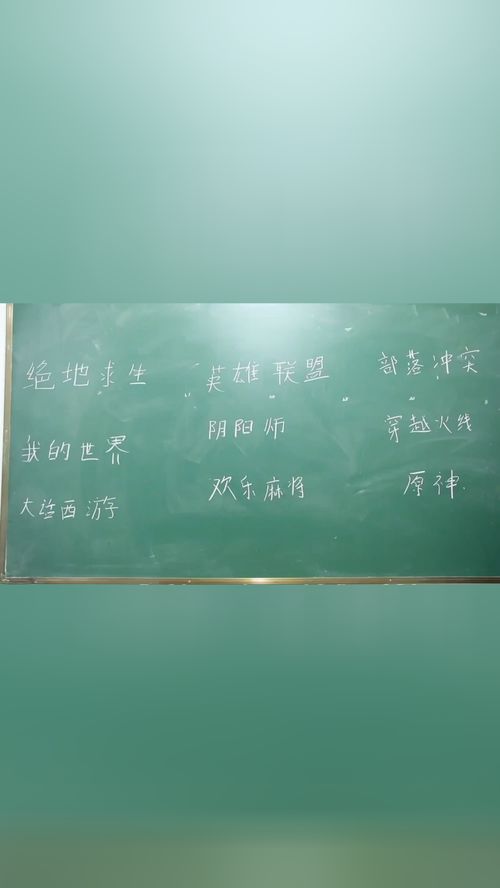 绝地求生 英雄联盟 部落冲突
我的世界 阴阳师 穿越火线
大话西游 欢乐麻将 原神.